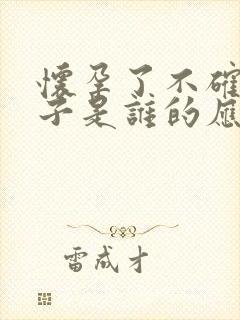 懷孕了不確
子是誰的應
雷成才